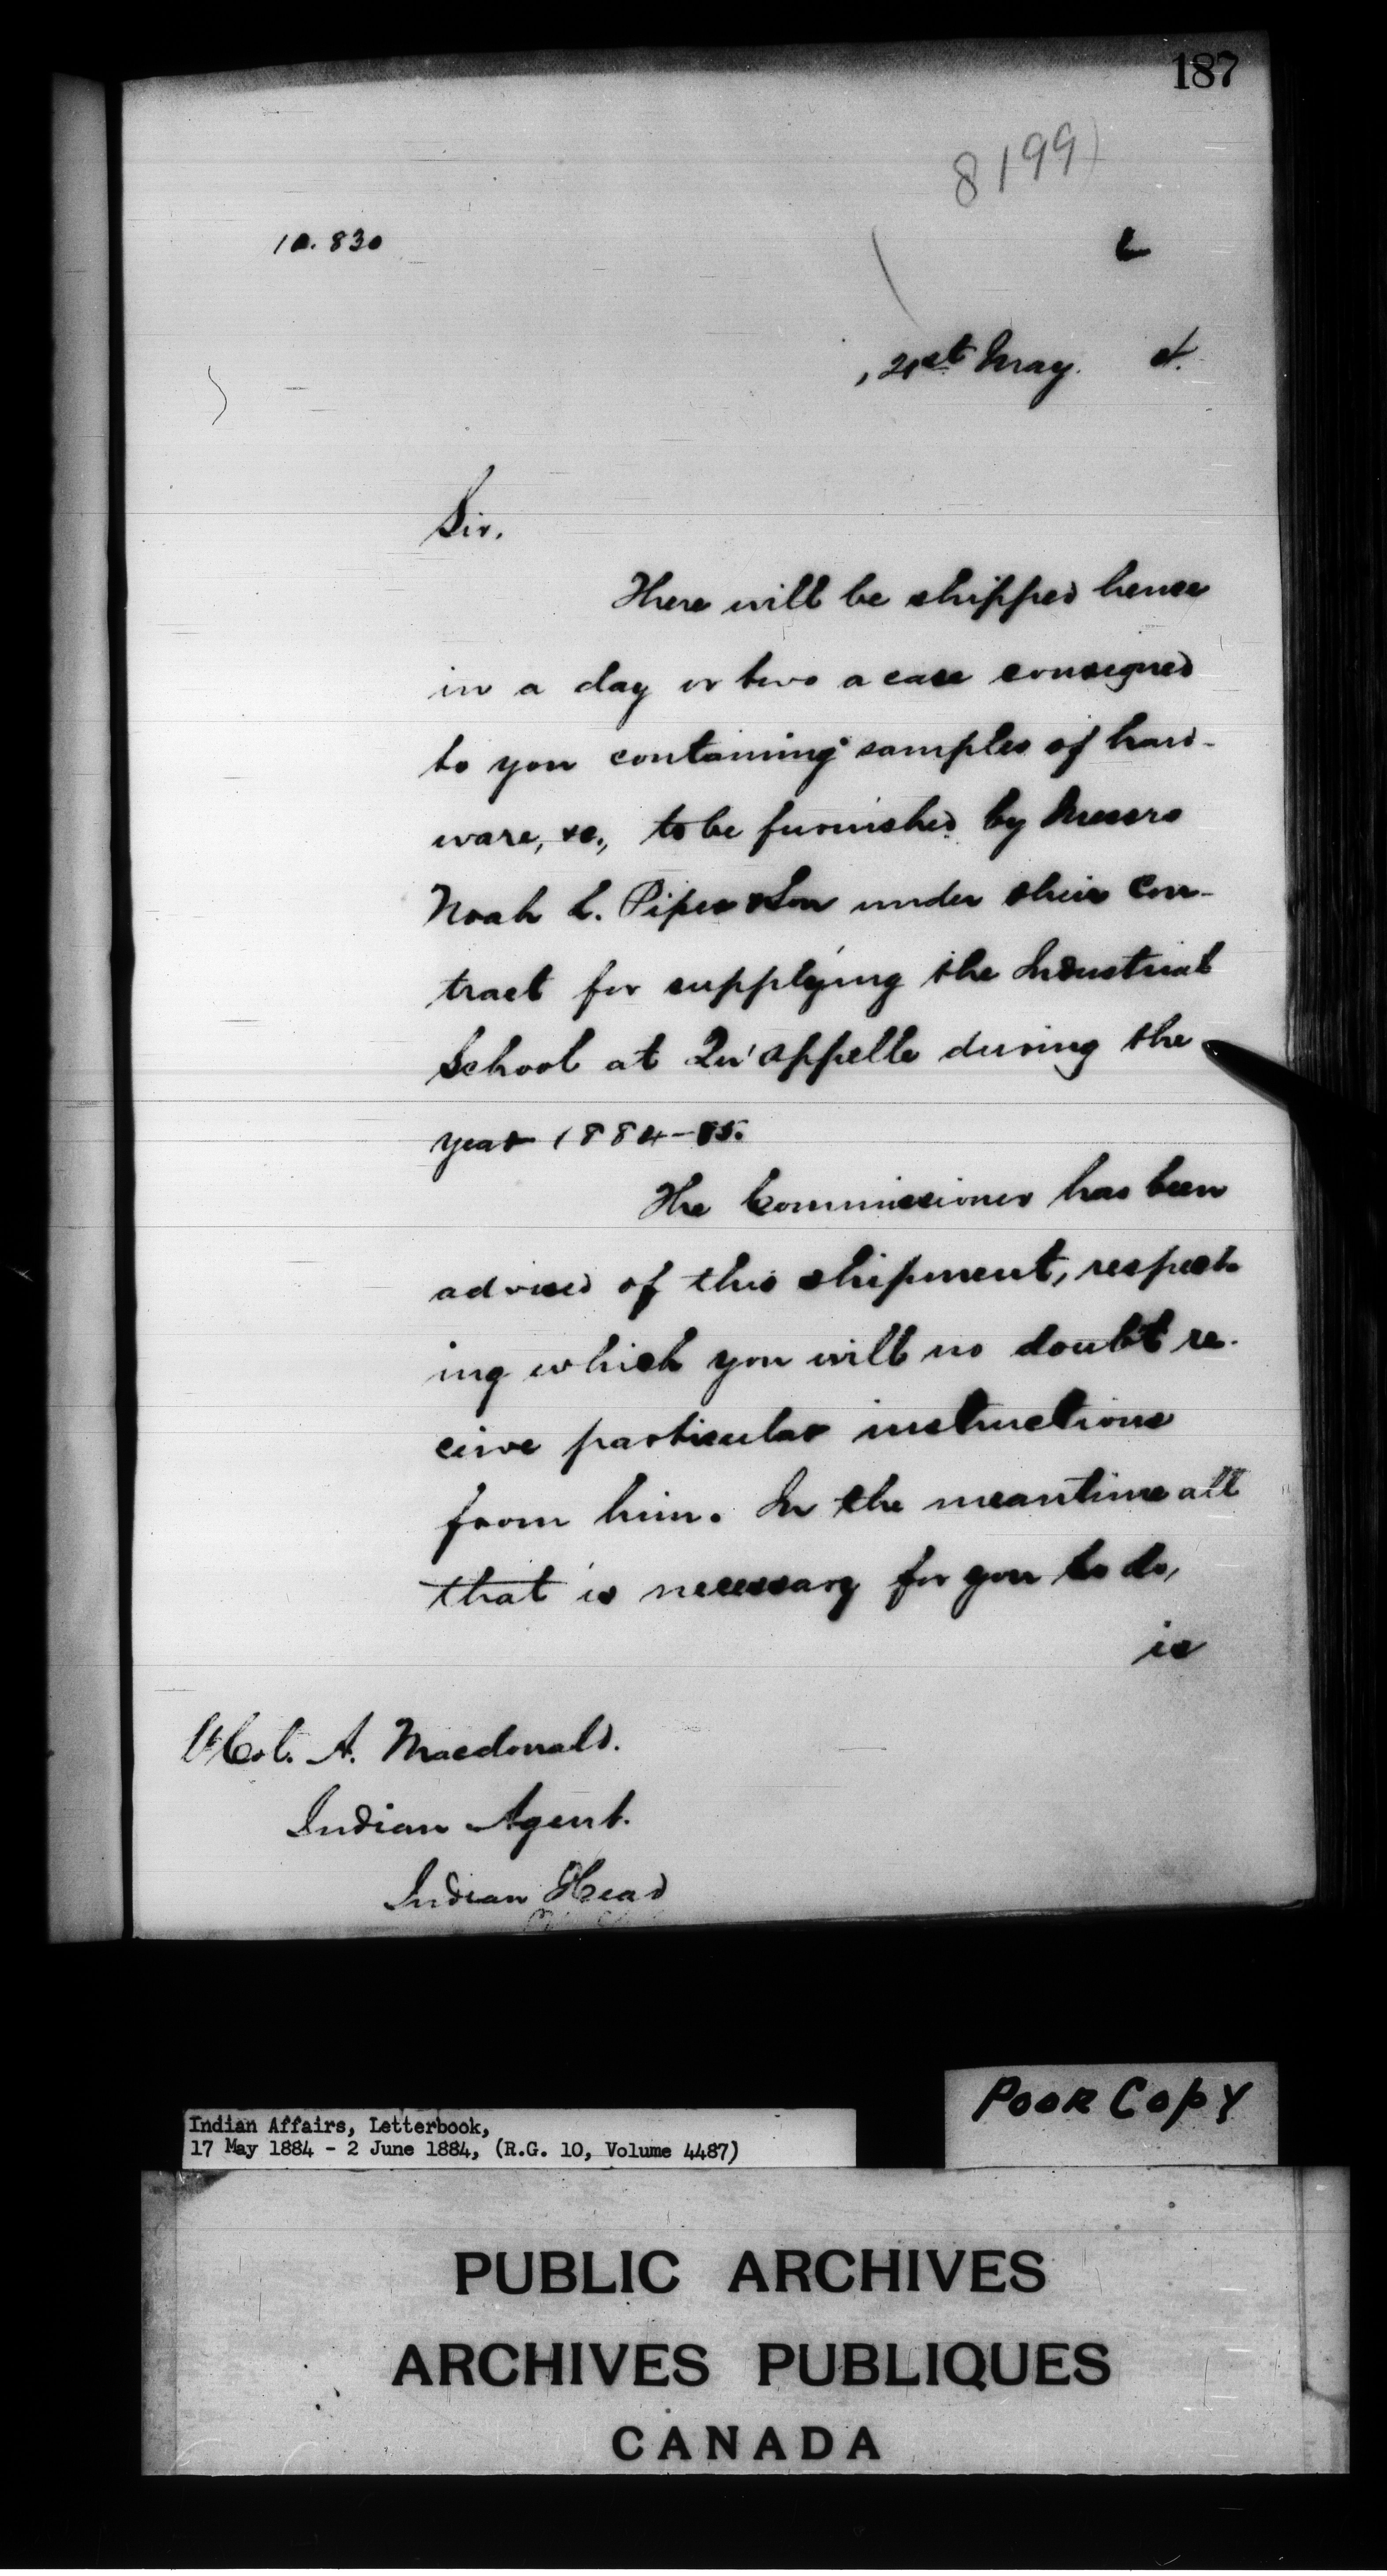 187
8199
10.830
21st May. 4.
Sir,
There will be shipped hence
in a day or two a case consigned
to you containing samples of hard-
ware, &c., to be furnished by Messrs
Noah L. Piper & Son under their con-
tract for supplying the Industrial
School at Qu'appelle during the
year 1884-85.
The Commissioner has been
advised of this shipment, respect-
ing which you will no doubt re-
ceive particular instructions
from him. In the meantime all
that is necessary for you to do,
is
Lt Col. A. Macdonald.
Indian Agent.
Indian Head
POOR COPY
Indian Affairs, Letterbook,
17 May 1884 - 2 June 1884, (R.G. 10, Volume 4487)
PUBLIC ARCHIVES
ARCHIVES PUBLIQUES
CANADA